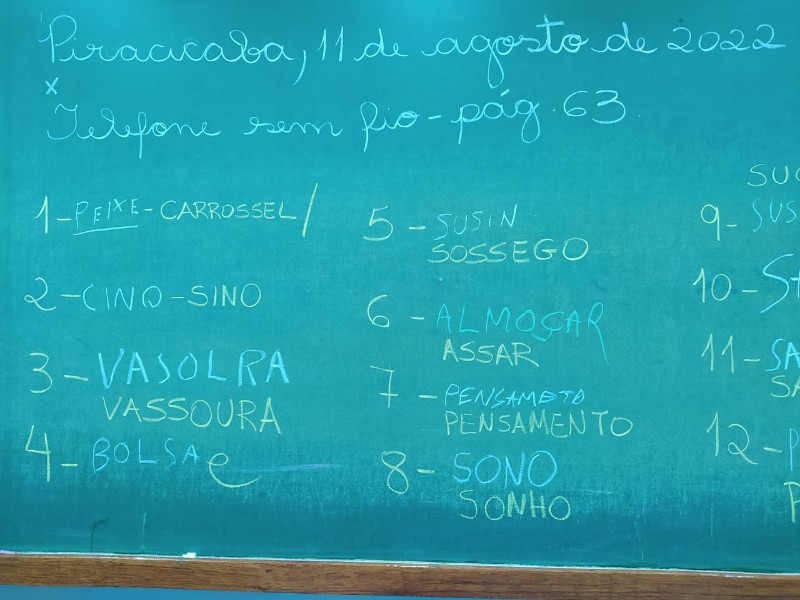 Piracicaba, 11 de agosto de 2022
x
Telefone sem fio - pág. 63
1 - PEIXE - CARROSSEL /
2 - CINO - SINO
3 - VASOLRA
VASSOURA
4 - BOLSA e
5 - SUSIN
SOSSEGO
6 - ALMOÇAR
ASSAR
7 - PENSAMETO
PENSAMENTO
8 - SONO
SONHO
9 -
10 -
11 -
12 -